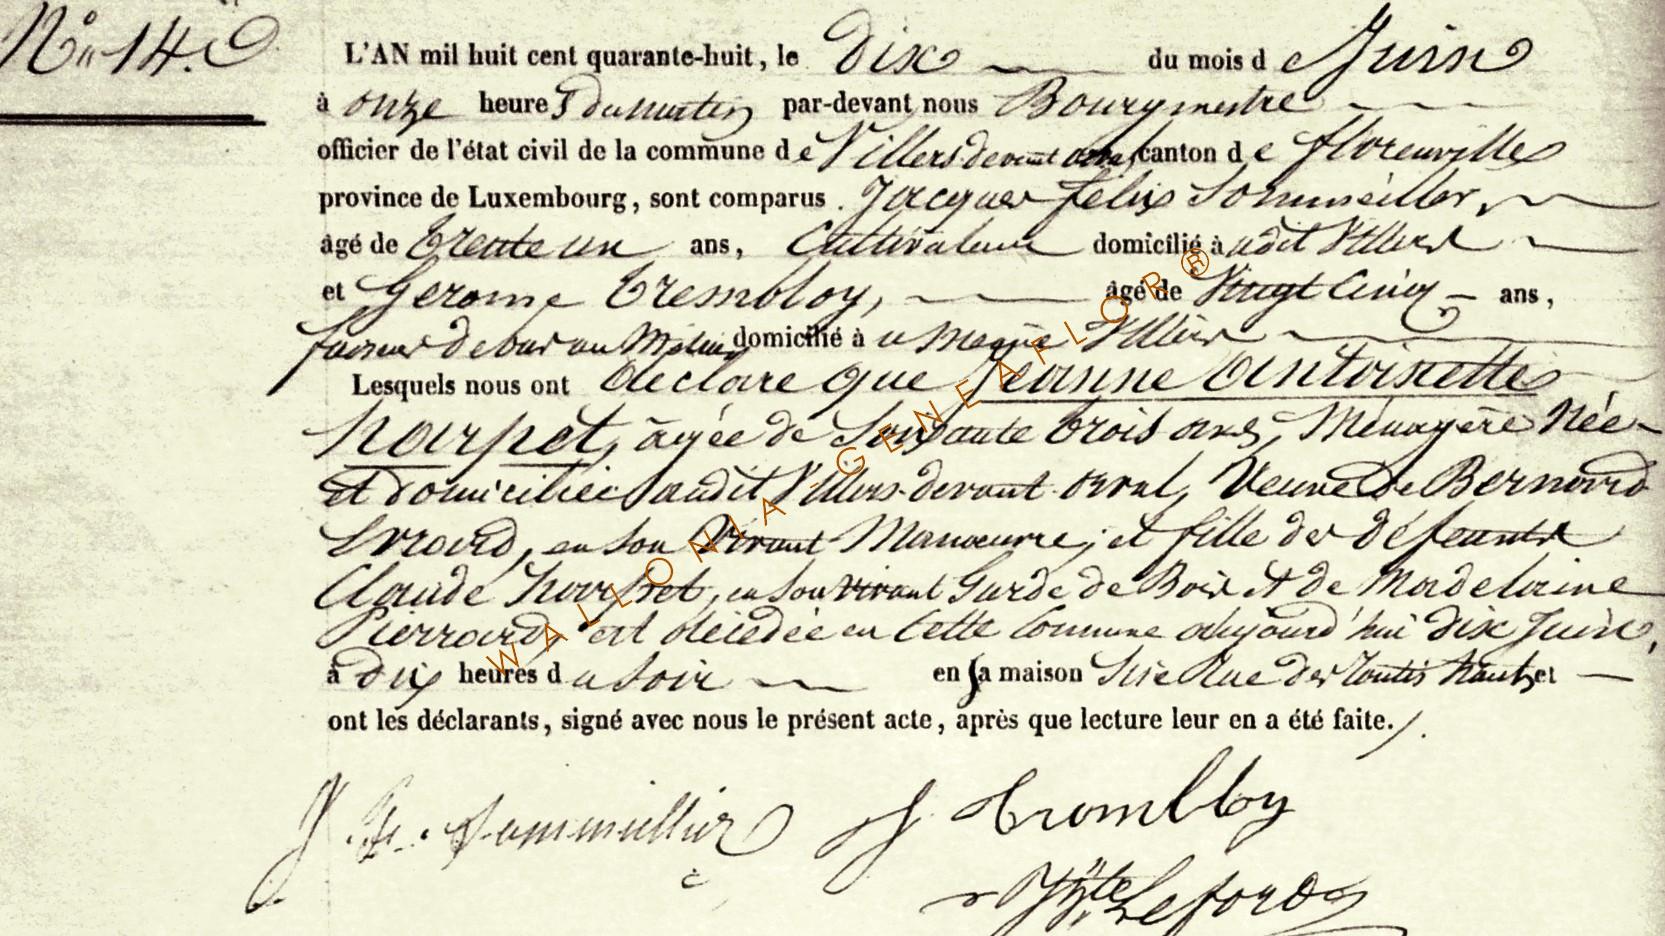 N° 14.
L'AN mil huit cent quarante-huit, le Dix du mois de Juin
à onze heures du matin par-devant nous Bourgmestre
officier de l'état civil de la commune de Villers devant orval, canton de florenville
province de Luxembourg, sont comparus Jacques felix Sommeiller,
âgé de trente un ans, Cultivateur domicilié à udit Villers
et Gerome Trembloy, âgé de Vingt Cinq ans,
domicilié à u Meme Villers
Lesquels nous ont déclaré que Jeanne Antoinette
harpet, agée de Soixante trois ans, Ménagère Née
et domiciliée audit Villers-devant-orval, Veuve de Bernard
Evrard, en Son Vivant Manœuvre; et fille des défeunts
Claude harpet, en son vivant Garde de Bois et de Madelaine
Pierrard, est décédée en Cette Commune aujourd'hui dix Juin,
à dix heures du Soir en sa maison Sise Rue des hauts, et
ont les déclarants, signé avec nous le présent acte, après que lecture leur en a été faite.
J. F. Sommeillier J Trombloy
Hyte Leford
WALLONIA-GENEAFLOR®